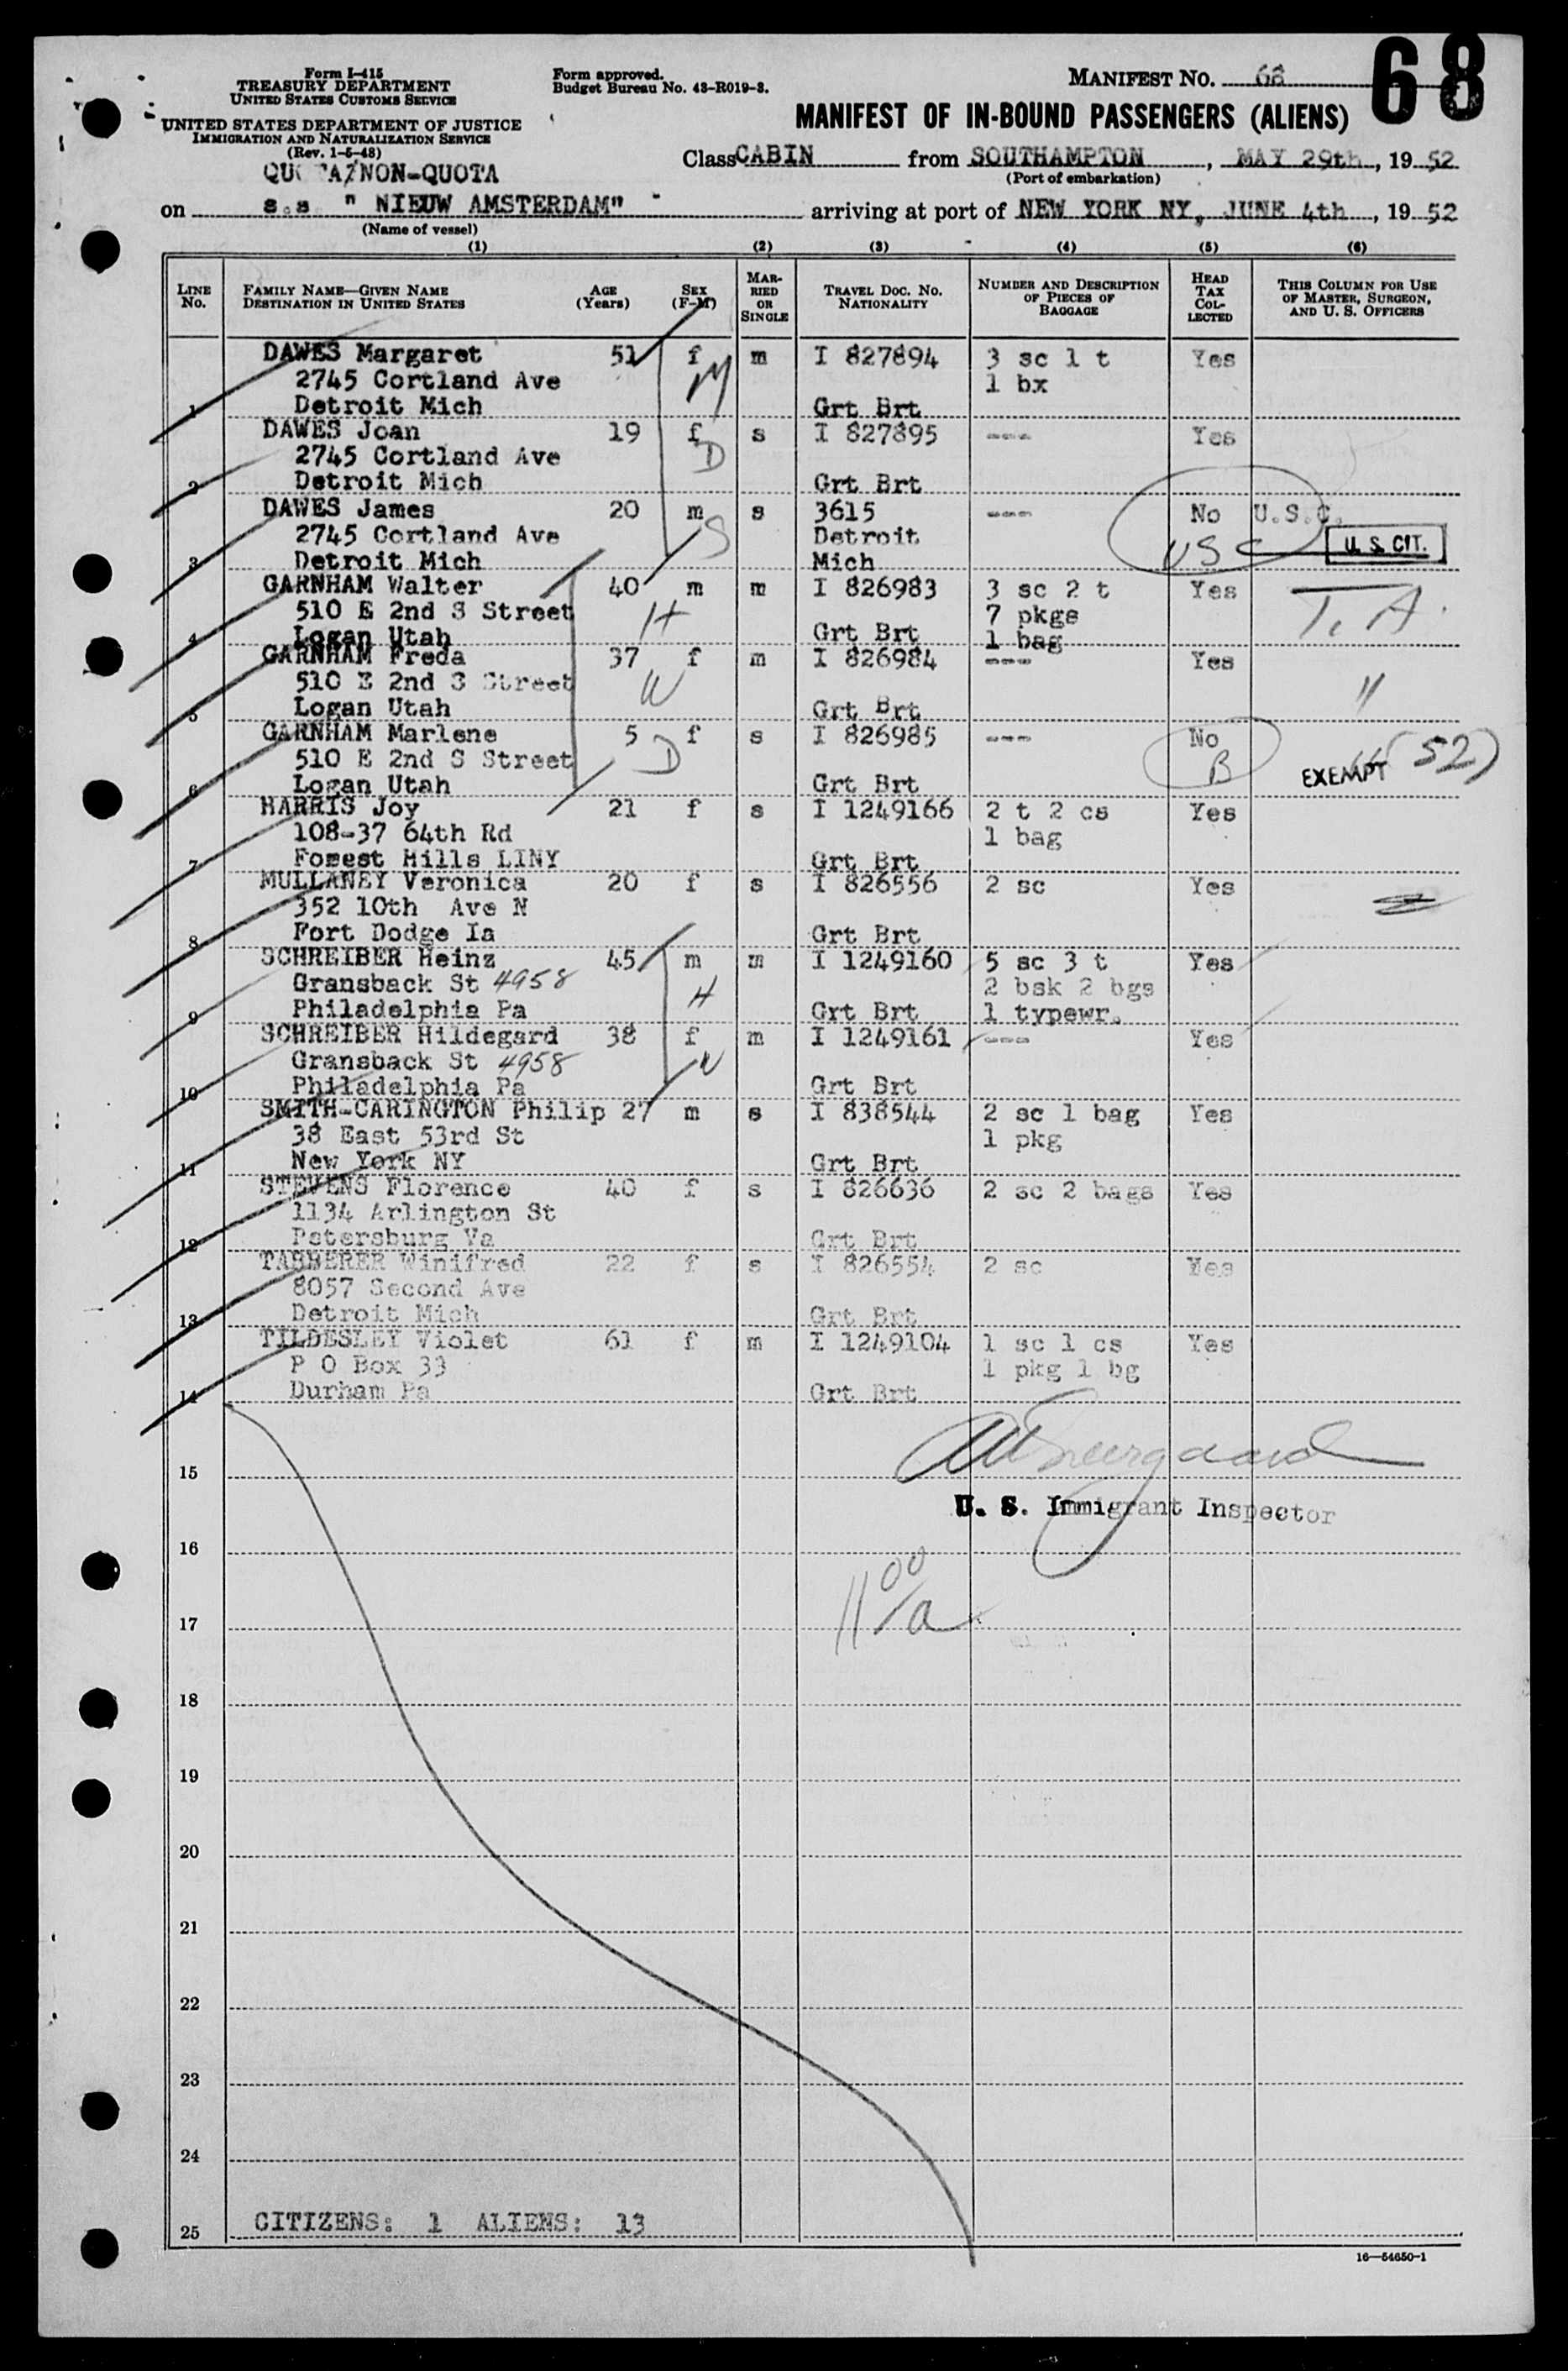 68
Form I-415
TREASURY DEPARTMENT
UNITED STATES CUSTOMS SERVICE
UNITED STATES DEPARTMENT OF JUSTICE
IMMIGRATION AND NATURALIZATION SERVICE
(Rev. 1-5-48)
Form approved.
Budget Bureau No. 43-R019-3.
MANIFEST NO. 68
MANIFEST OF IN-BOUND PASSENGERS (ALIENS)
QUOTA/NON-QUOTA
Class CABIN from SOUTHAMPTON, MAY 29th, 1952
(Port of embarkation)
on s.s. " NIEUW AMSTERDAM" arriving at port of NEW YORK NY, JUNE 4th, 1952
(Name of vessel)
(1) (2) (3) (4) (5) (6)
LINE No. FAMILY NAME—GIVEN NAME DESTINATION IN UNITED STATES AGE (Years) SEX (F-M) MARRIED OR SINGLE TRAVEL DOC. NO. NATIONALITY NUMBER AND DESCRIPTION OF PIECES OF BAGGAGE HEAD TAX COLLECTED THIS COLUMN FOR USE OF MASTER, SURGEON, AND U. S. OFFICERS
DAWES Margaret 51 f m I 827894 3 sc 1 t Yes
2745 Cortland Ave M 1 bx
1 Detroit Mich Grt Brt
DAWES Joan 19 f s I 827895 --- Yes
2745 Cortland Ave D
2 Detroit Mich Grt Brt
DAWES James 20 m s 3615 --- No U.S.C.
2745 Cortland Ave S Detroit USC U. S. CIT.
3 Detroit Mich Mich
GARNHAM Walter 40 m m I 826983 3 sc 2 t Yes T. A.
510 E 2nd S Street H 7 pkgs
4 Logan Utah Grt Brt 1 bag
GARNHAM Freda 37 f m I 826984 --- Yes
510 E 2nd S Street W "
5 Logan Utah Grt Brt
GARNHAM Marlene 5 f s I 826985 --- No
510 E 2nd S Street D B EXEMPT 52)
6 Logan Utah Grt Brt
HARRIS Joy 21 f s I 1249166 2 t 2 cs Yes
108-37 64th Rd 1 bag
7 Forest Hills LINY Grt Brt
MULLANEY Veronica 20 f s I 826556 2 sc Yes
352 10th Ave N
8 Fort Dodge Ia Grt Brt
SCHREIBER Heinz 45 m m I 1249160 5 sc 3 t Yes
Gransback St 4958 H 2 bsk 2 bgs
9 Philadelphia Pa Grt Brt 1 typewr.
SCHREIBER Hildegard 38 f m I 1249161 --- Yes
Gransback St 4958 W
10 Philadelphia Pa Grt Brt
SMITH-CARINGTON Philip 27 m s I 838544 2 sc 1 bag Yes
38 East 53rd St 1 pkg
11 New York NY Grt Brt
STEVENS Florence 40 f s I 826636 2 sc 2 bags Yes
1134 Arlington St
12 Petersburg Va Grt Brt
TABBERER Winifred 22 f s I 826554 2 sc Yes
8057 Second Ave
13 Detroit Mich Grt Brt
TILDESLEY Violet 61 f m I 1249104 1 sc 1 cs Yes
P O Box 33 1 pkg 1 bg
14 Durham Pa Grt Brt
15
U. S. Immigrant Inspector
16
11 00/a
17
18
19
20
21
22
23
24
25 CITIZENS: 1 ALIENS: 13
16—54650-1